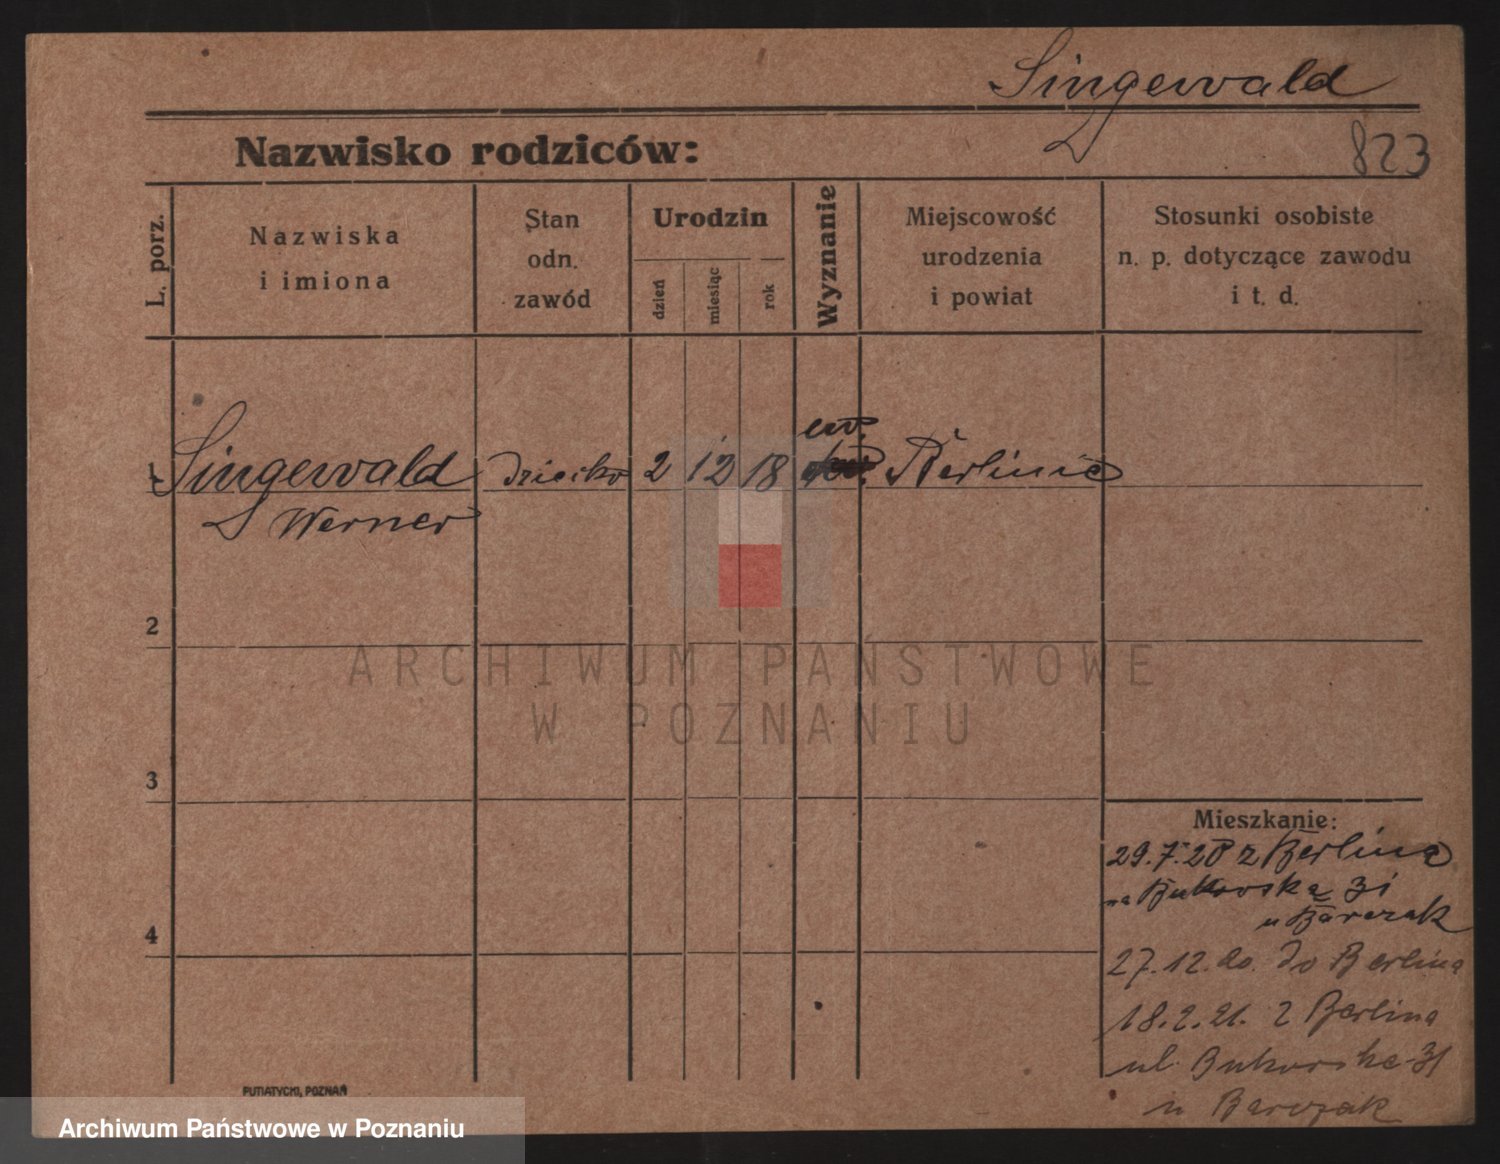 Singewald
Nazwisko rodziców:
823
L. porz.
Nazwiska
i imiona
Stan
odn.
zawód
Urodzin
dzień
miesiąc
rok
Wyznanie
Miejscowość
urodzenia
i powiat
Stosunki osobiste
n. p. dotyczące zawodu
i t. d.
1 Singewald dziecko 2 12 18 ew. Berlinie
Werner
2
3
4
Mieszkanie:
29.7.20 z Berlina
na Bukowską 31
u Barczak
27.12.20. do Berlina
18.2.21. z Berlina
ul. Bukowska 31
u Barczak
PUTIATYCKI, POZNAŃ
ARCHIWUM PAŃSTWOWE
W POZNANIU
Archiwum Państwowe w Poznaniu